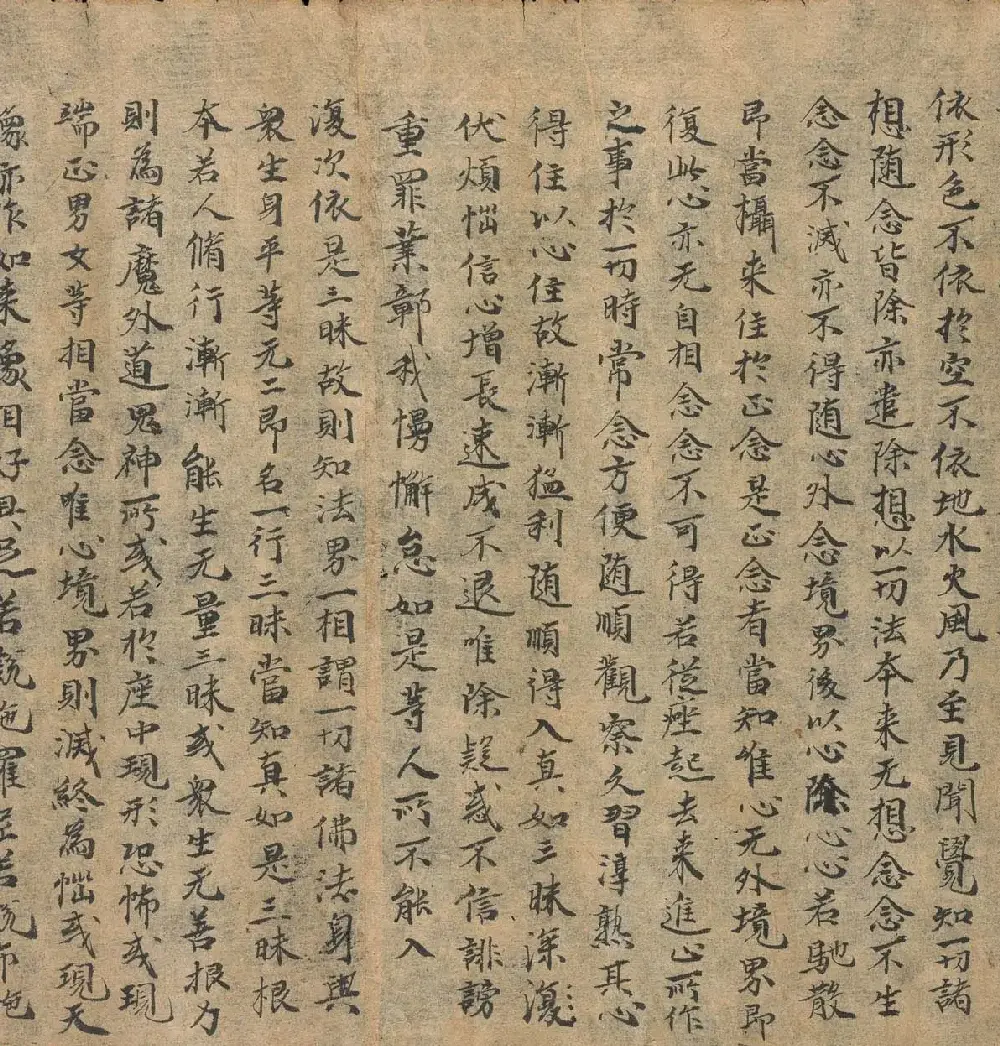 依形色不依於空不依地水火風乃至見聞覺知一切諸
想随念皆除亦遣除想以一切法本来无想念念不生
念念不滅亦不得随心外念境界後以心除心心若馳散
即當攝来住於正念是正念者當知唯心无外境界即
復此心亦无自相念念不可得若從座起去来進止所作
之事於一切時常念方便随順觀察久習淳熟其心
得住以心住故漸漸猛利随順得入真如三昧深
伏煩惱信心增長速成不退唯除疑惑不信誹謗
重罪業鄣我慢懈怠如是等人所不能入
復次依是三昧故則知法界一相謂一切諸佛法身與
衆生身平等无二即名一行三昧當知真如是三昧根
本若人脩行漸漸能生无量三昧或衆生无善根力
則為諸魔外道鬼神所或若於座中現形恐怖或現
端正男女等相當念唯心境界則滅終為惱或現天
像亦作如来像相好具足若說陀羅尼若說布施